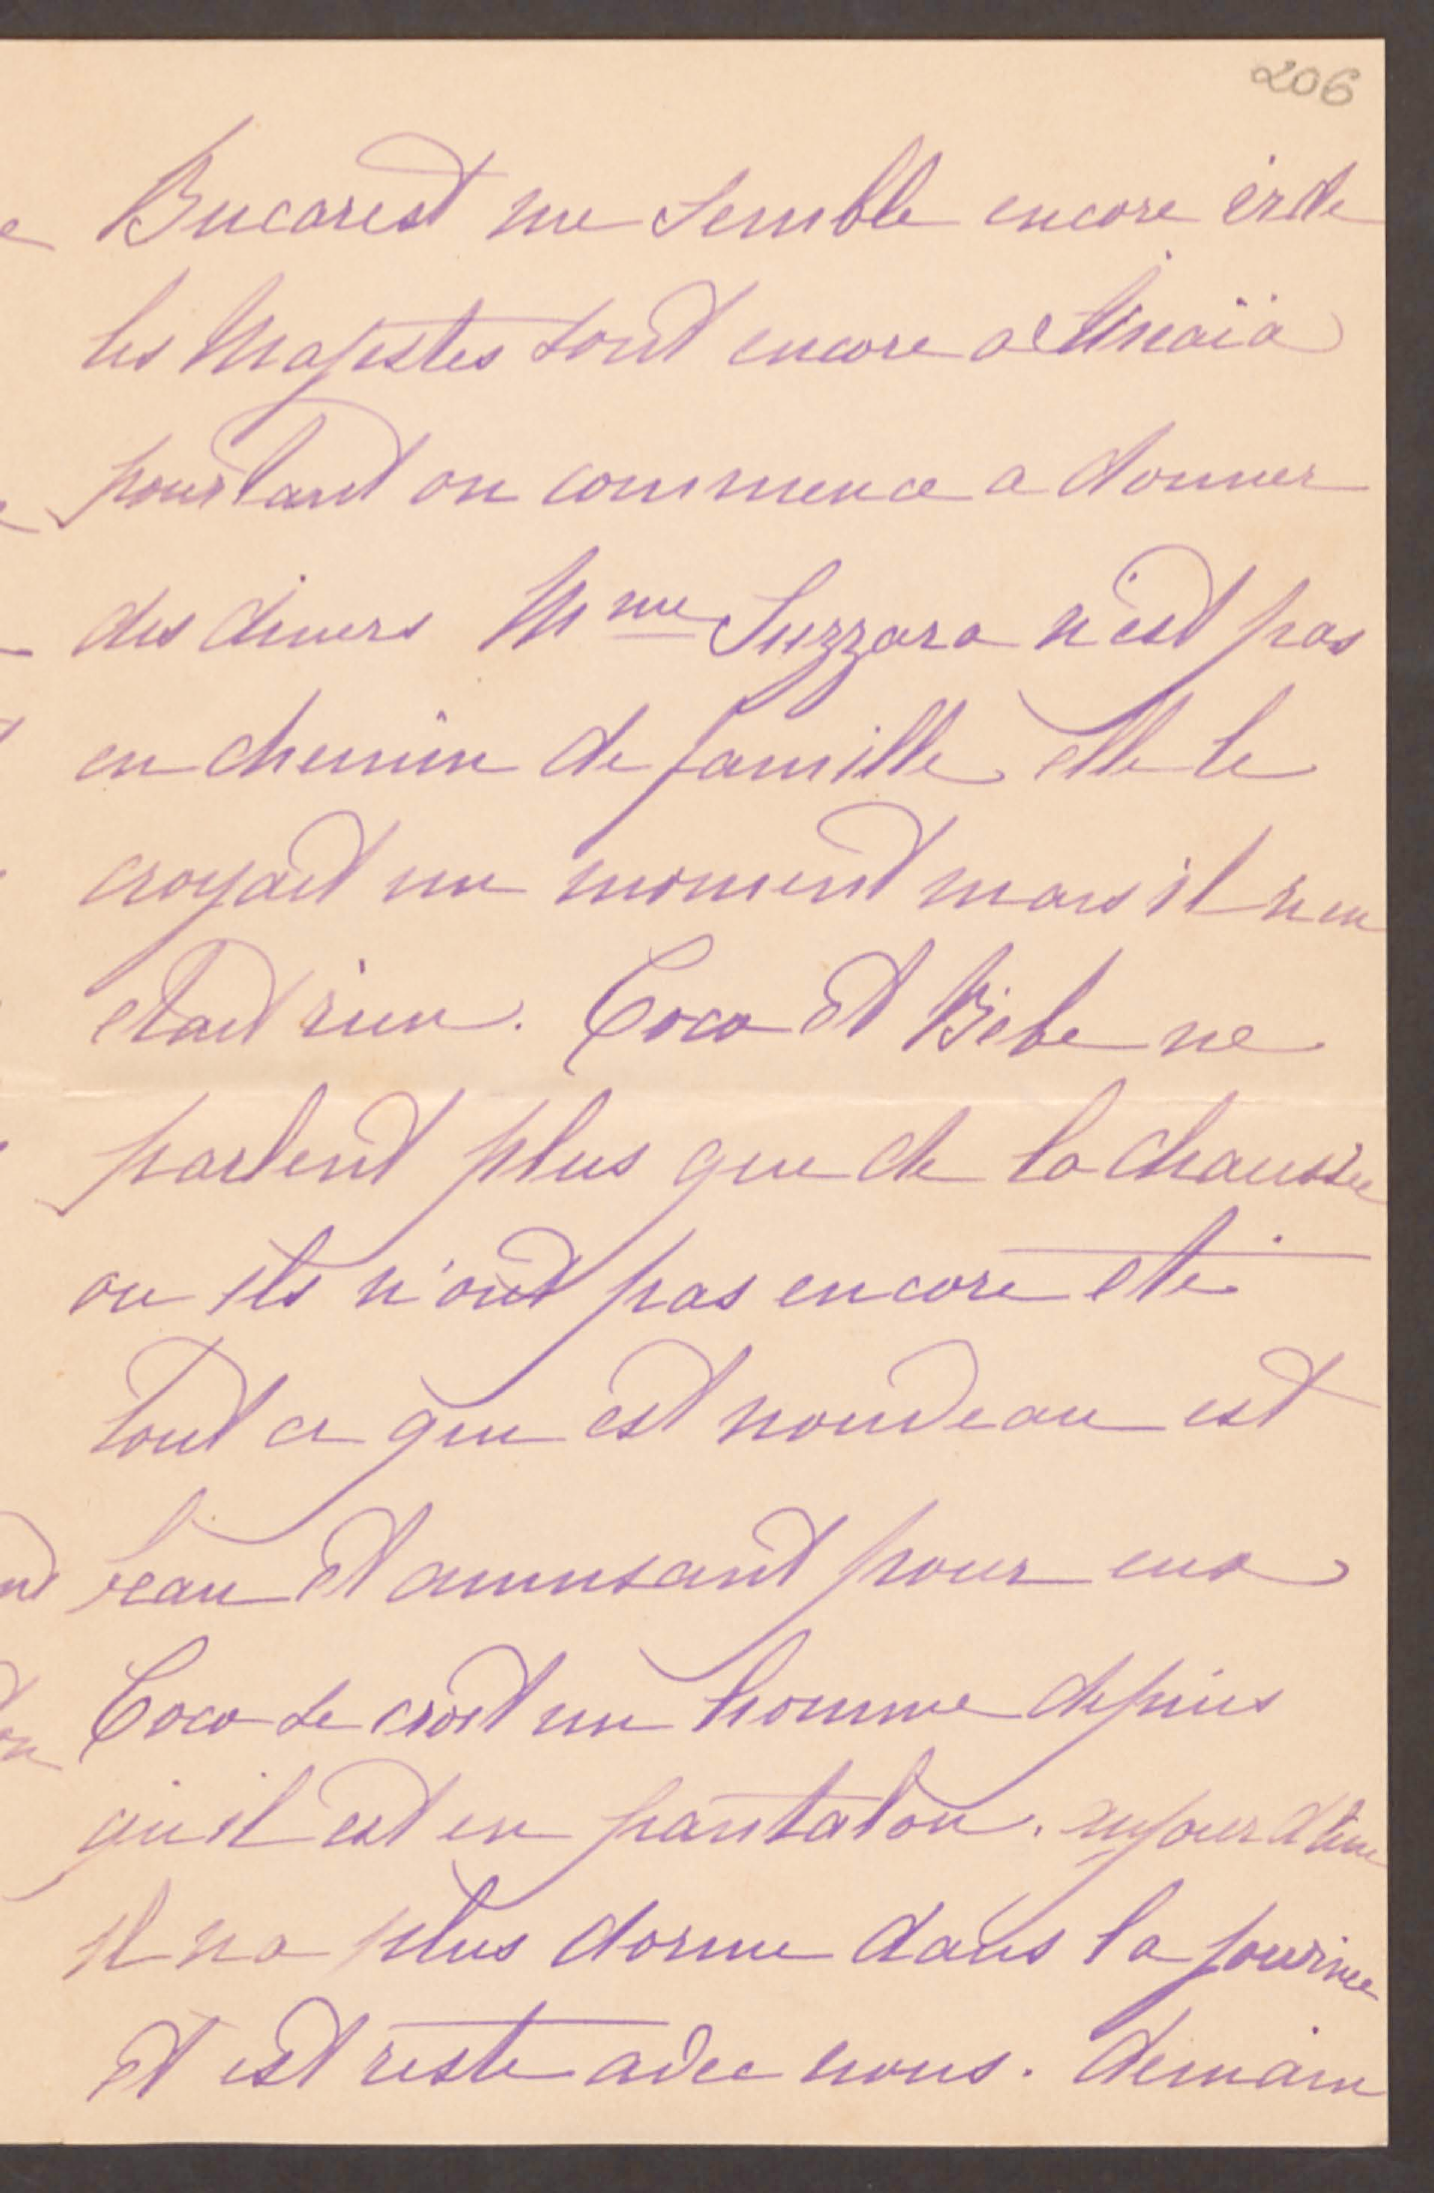 206
Bucarest me semble encore
les Majestes sont encore a Sinaïa
pourtant on commence a donner
des diners Mme Suzzara n'est pas
en chemin de famille elle le
croyait un moment mais il n en
etait rien. Coco et Bébe ne
parlent plus que de la chaussée
ou ils n'ont pas encore eté
tout ce qui est nouveau est
beau et amusant pour eux
Coco se croit un homme depuis
qu il est en pantalon. aujourd'hui
il n a plus dormi dans la journee
et est reste avec nous. demain